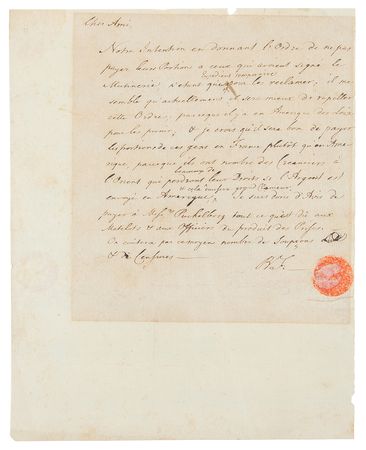 Cher Ami
Notre Intention en donnant l'Ordre de ne pas
payer leurs Portions a ceux qui avoient signé le
Expedient temporaire
n'étant que pour le reclamer, il me
semble qu'actuellement il sera mieux de rapeller
cette Ordre, parceque il y a en Amerique des Loix
pour les punir, & je crois qu'il sera bon de payer
les portions de ces gens en France plutôt qu'en Ame-
rique, parceque ils ont nombre des Creanciers à
beaucoup de
l'Orient qui perdront leur Droits si l'Argent est
& cela causera
envoyé en Amerique. Je suis donc d'Avis de
payer à Messrs Puchelberg tout ce qui est dû aux
Matelots & aux Officiers du produit des Prises.
On evitera par ce moyen nombre de Soupçons
& de Censures
B. F.